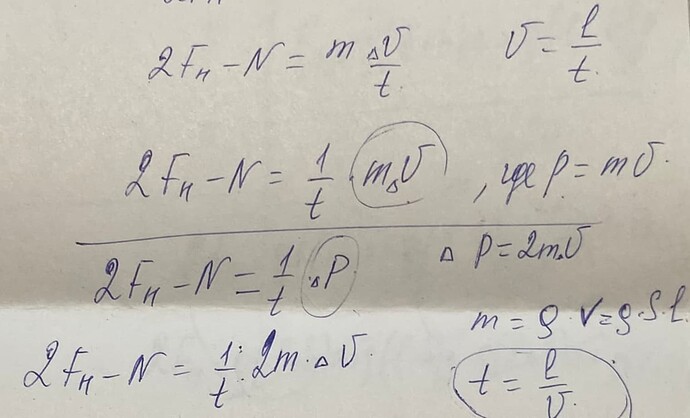 2Fн - N = m Δv/t v = l/t
2Fн - N = 1/t · mΔv , где p = mv.
2Fн - N = 1/t · ΔP Δ P = 2mv
m = ρ · V = ρ · S · l
2Fн - N = 1/t · 2m · Δv.
t = l/v